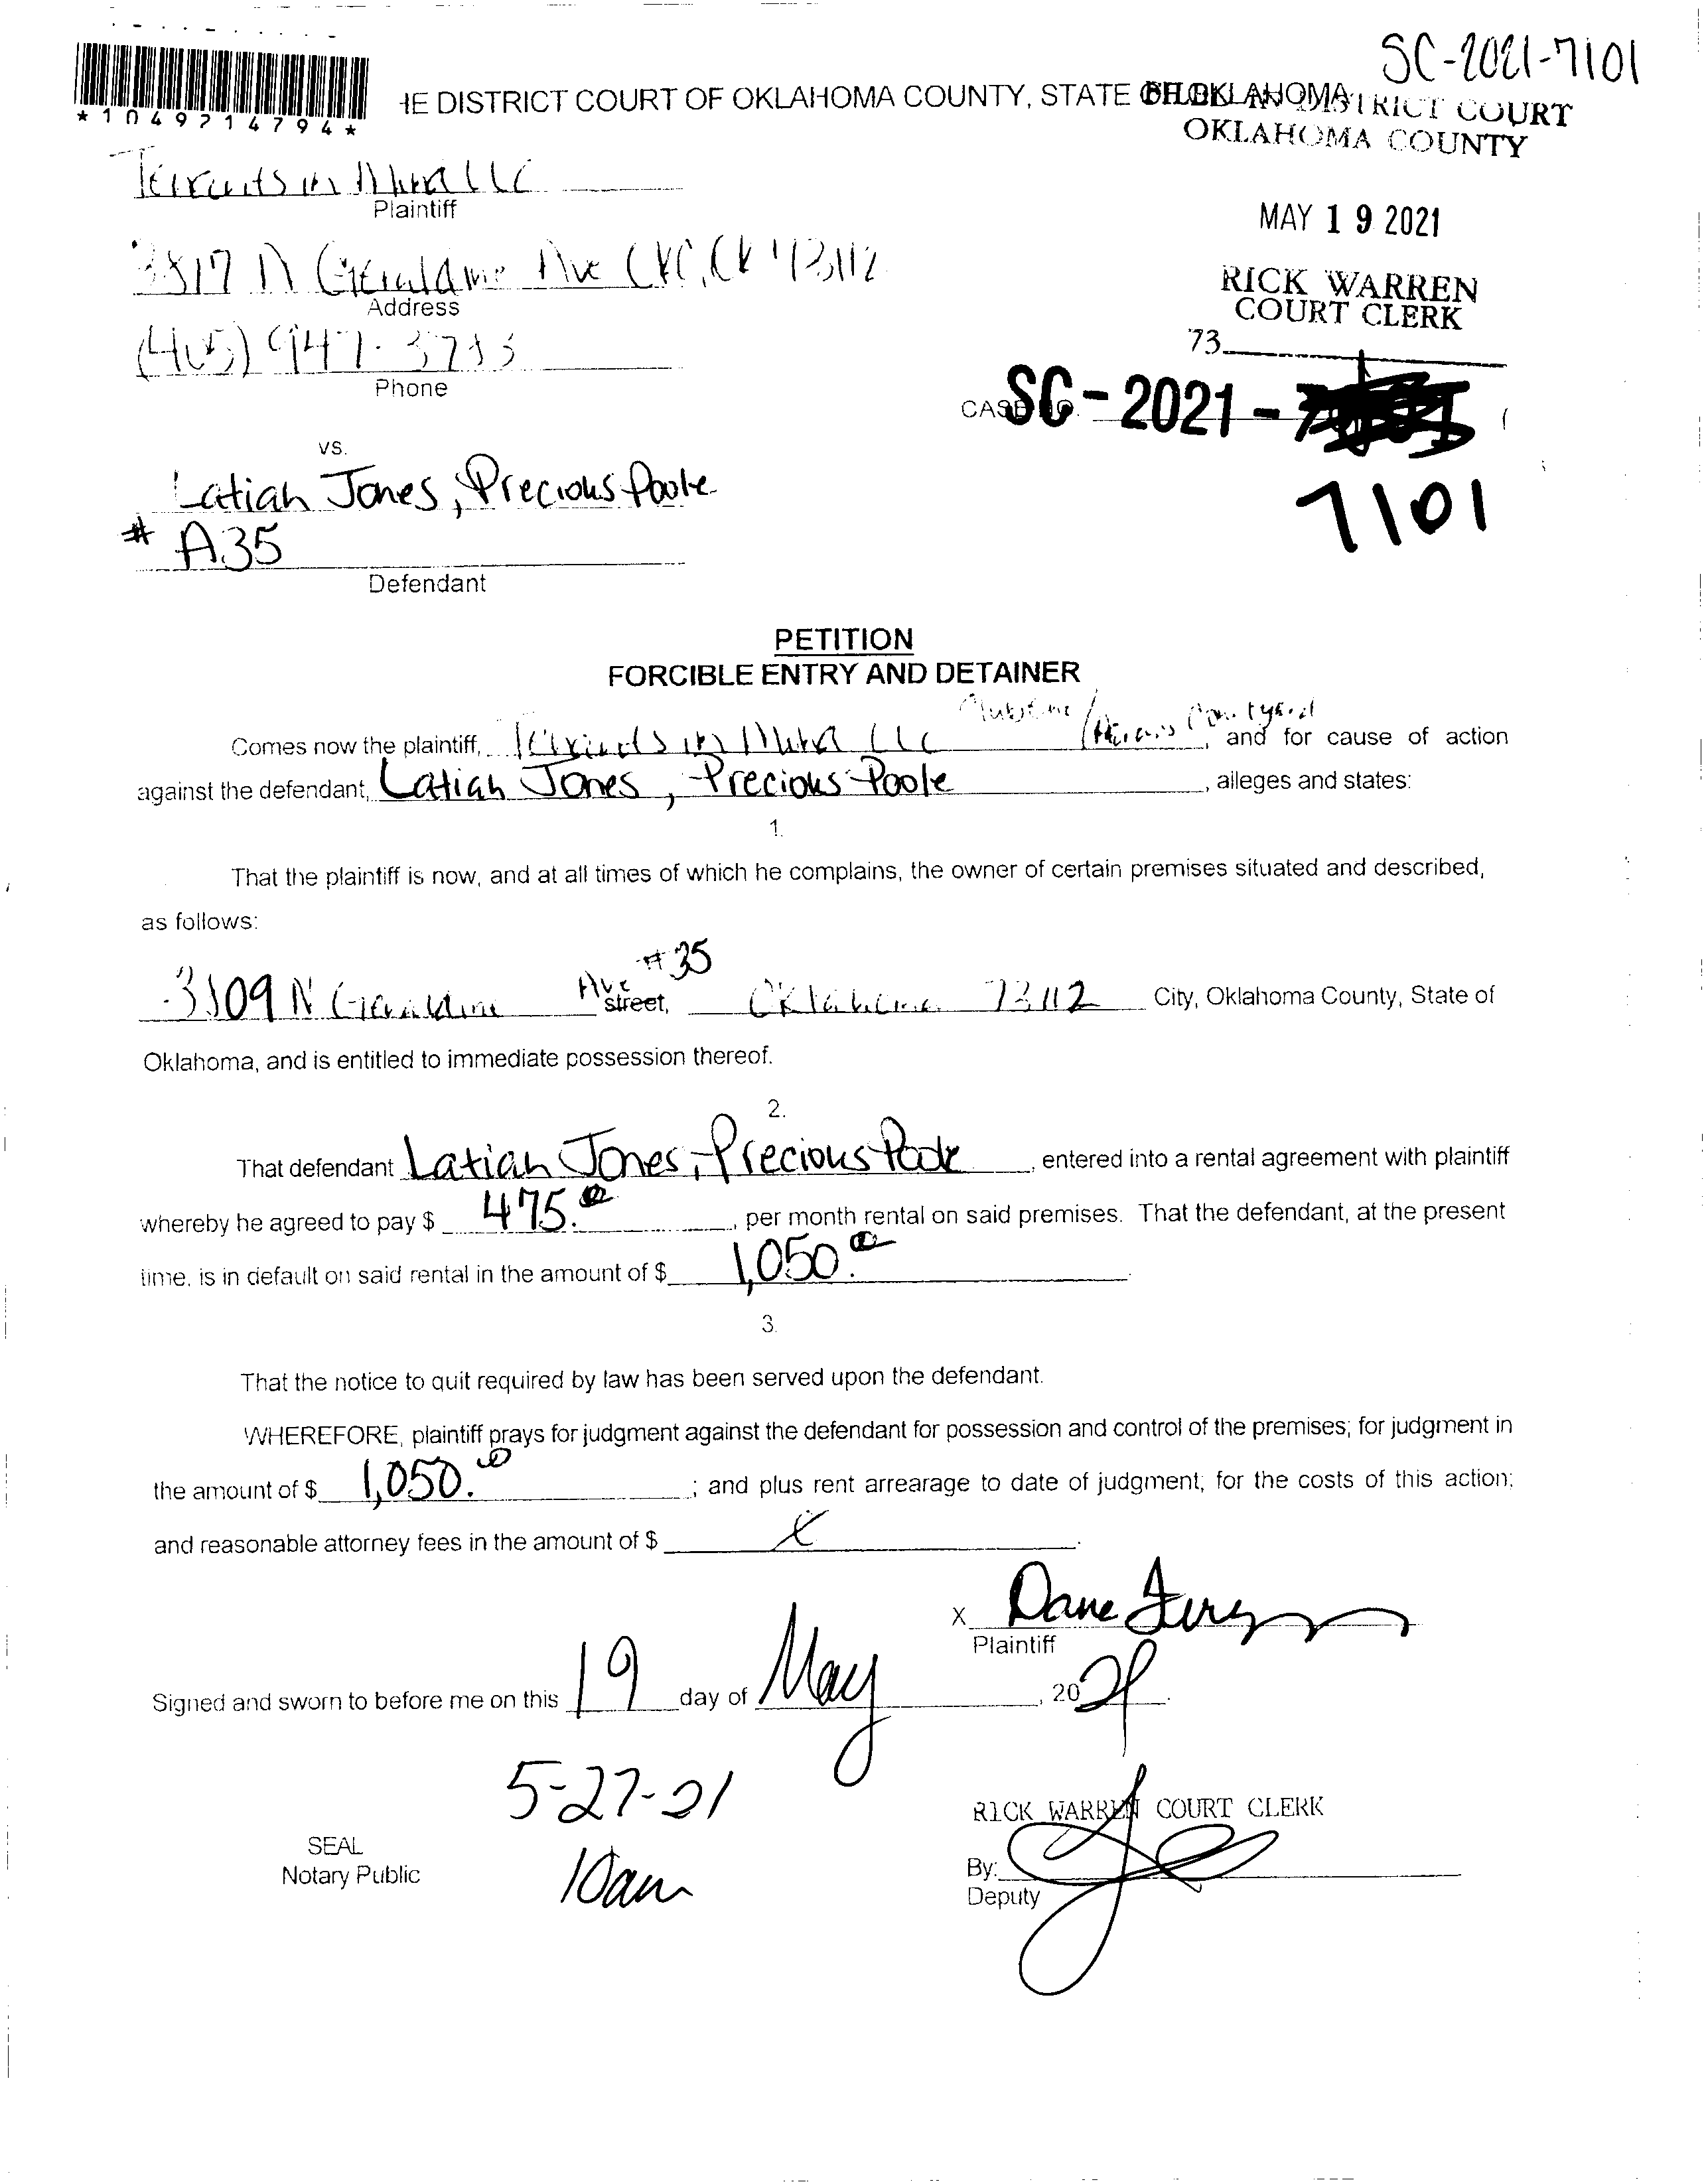 SC-2021-7101
*1049214794*
HE DISTRICT COURT OF OKLAHOMA COUNTY, STATE OF OKLAHOMA
DISTRICT COURT
OKLAHOMA COUNTY
LLC
Plaintiff
MAY 19 2021
N Geraldine Ave OKC, OK 73112
Address
RICK WARREN
COURT CLERK
(405) 947-
Phone
73
CASE NO. SC-2021-
7101
vs.
Latiah Jones, Precious Poole
# A35
Defendant
PETITION
FORCIBLE ENTRY AND DETAINER
Courtyard
Comes now the plaintiff, LLC , and for cause of action
against the defendant, Latiah Jones, Precious Poole , alleges and states:
1.
That the plaintiff is now, and at all times of which he complains, the owner of certain premises situated and described,
as follows:
#35
N Geraldine Ave street, Oklahoma 73112 City, Oklahoma County, State of
Oklahoma, and is entitled to immediate possession thereof.
2.
That defendant Latiah Jones, Precious Poole , entered into a rental agreement with plaintiff
whereby he agreed to pay $ 475.00 , per month rental on said premises. That the defendant, at the present
time, is in default on said rental in the amount of $ 1,050.00 .
3.
That the notice to quit required by law has been served upon the defendant.
WHEREFORE, plaintiff prays for judgment against the defendant for possession and control of the premises; for judgment in
the amount of $ 1,050.00 ; and plus rent arrearage to date of judgment; for the costs of this action;
and reasonable attorney fees in the amount of $ x .
X Dane
Plaintiff
Signed and sworn to before me on this 19 day of May , 2021.
5-27-21
10am
SEAL
Notary Public
RICK WARREN COURT CLERK
By:
Deputy